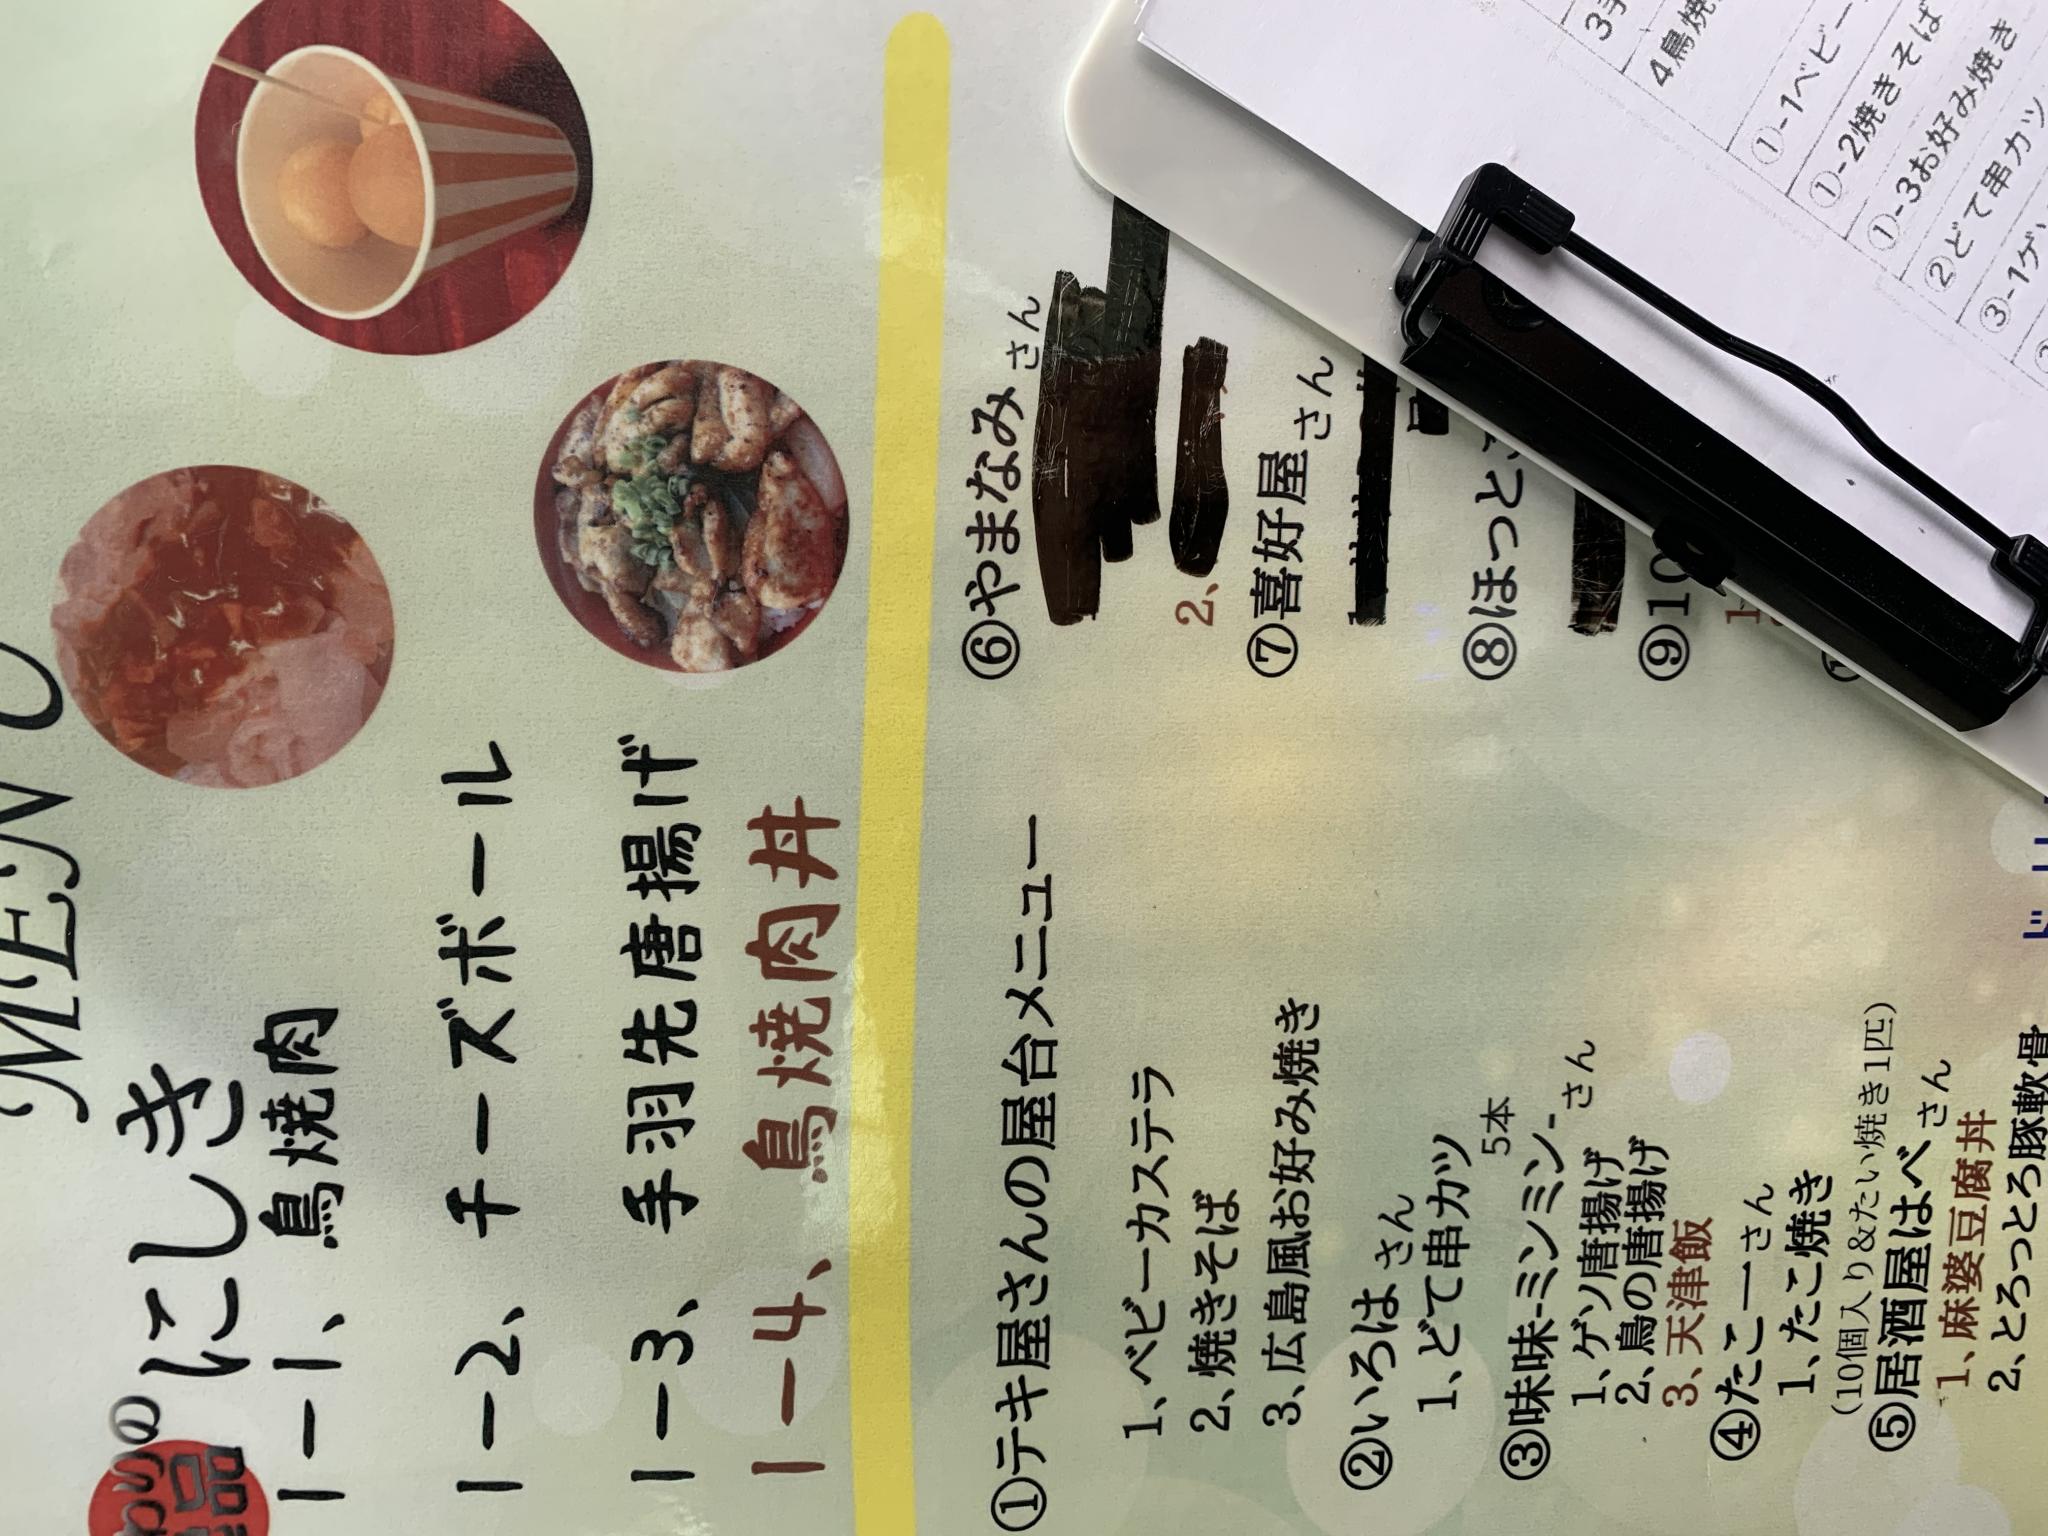 MENU
にしき
1-1、鳥焼肉
1-2、チーズボール
1-3、手羽先唐揚げ
1-4、鳥焼肉丼
①テキ屋さんの屋台メニュー
1、ベビーカステラ
2、焼きそば
3、広島風お好み焼き
②いろはさん
1、どて串カツ 5本
③味味-ミンミン-さん
1、ゲソ唐揚げ
2、鳥の唐揚げ
3、天津飯
④たこ一さん
1、たこ焼き
(10個入り&たい焼き1匹)
⑤居酒屋はべさん
1、麻婆豆腐丼
2、とろっとろ豚軟骨
⑥やまなみさん
2、
⑦喜好屋さん
⑧ほっと
⑨10
4鳥焼
①-1ベビー
①-2焼きそば
①-3お好み焼き
②どて串カツ
③-1ゲ